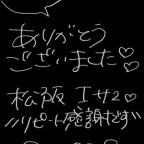 ありがとう
ございました♡♡
松阪 Iサ2♡
〃リピート感謝です〃